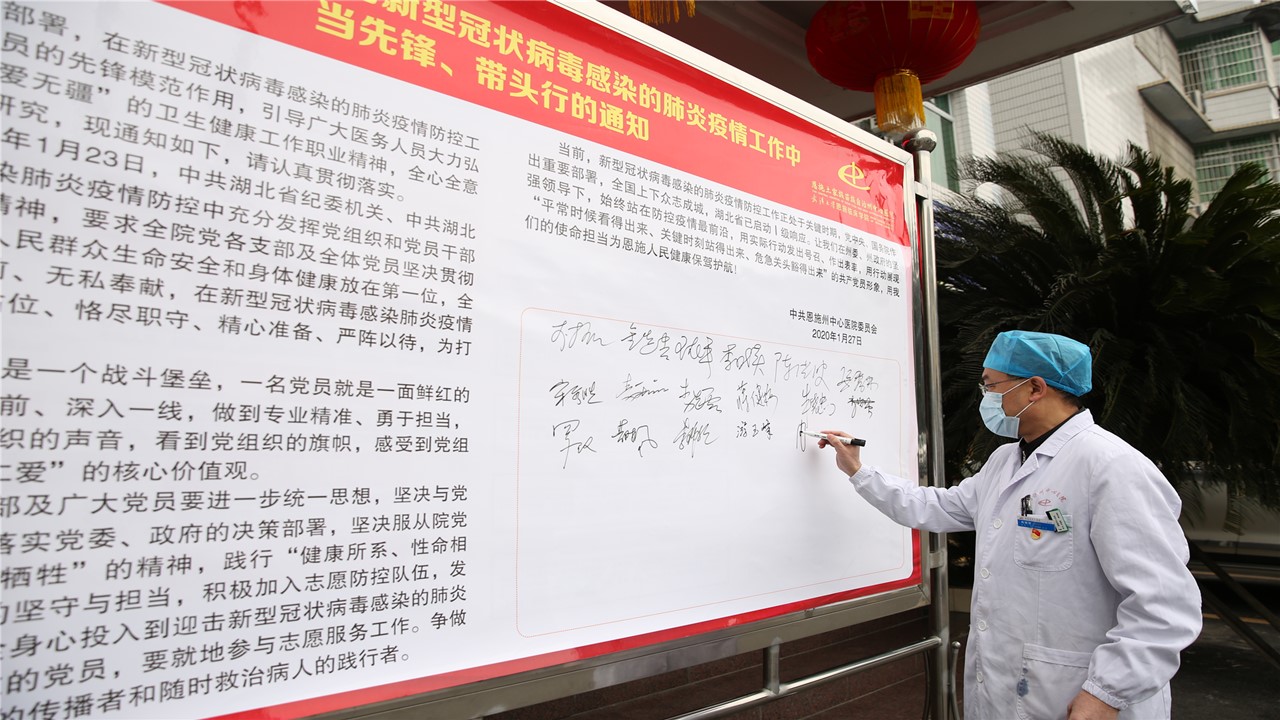 新型冠状病毒感染的肺炎疫情工作中
当先锋、带头行的通知
部署，在新型冠状病毒感染的肺炎疫情防控工
员的先锋模范作用，引导广大医务人员大力弘
爱无疆”的卫生健康工作职业精神，全心全意
研究，现通知如下，请认真贯彻落实。
年1月23日，中共湖北省纪委机关、中共湖北
染肺炎疫情防控中充分发挥党组织和党员干部
精神，要求全院党各支部及全体党员坚决贯彻
人民群众生命安全和身体健康放在第一位，全
、无私奉献，在新型冠状病毒感染肺炎疫情
位、恪尽职守、精心准备、严阵以待，为打
是一个战斗堡垒，一名党员就是一面鲜红的
前、深入一线，做到专业精准、勇于担当，
织的声音，看到党组织的旗帜，感受到党组
仁爱”的核心价值观。
部及广大党员要进一步统一思想，坚决与党
落实党委、政府的决策部署，坚决服从院党
牺牲”的精神，践行“健康所系、性命相
的坚守与担当，积极加入志愿防控队伍，发
全身心投入到迎击新型冠状病毒感染的肺炎
的党员，要就地参与志愿服务工作。争做
的传播者和随时救治病人的践行者。
当前，新型冠状病毒感染的肺炎疫情防控工作正处于关键时期，党中央、国务院作
出重要部署，全国上下众志成城，湖北省已启动Ⅰ级响应。让我们在州委、州政府的坚
强领导下，始终站在防控疫情最前沿，用实际行动发出号召、作出表率，用行动展现
“平常时候看得出来、关键时刻站得出来、危急关头豁得出来”的共产党员形象，用我
们的使命担当为恩施人民健康保驾护航！
中共恩施州中心医院委员会
2020年1月27日